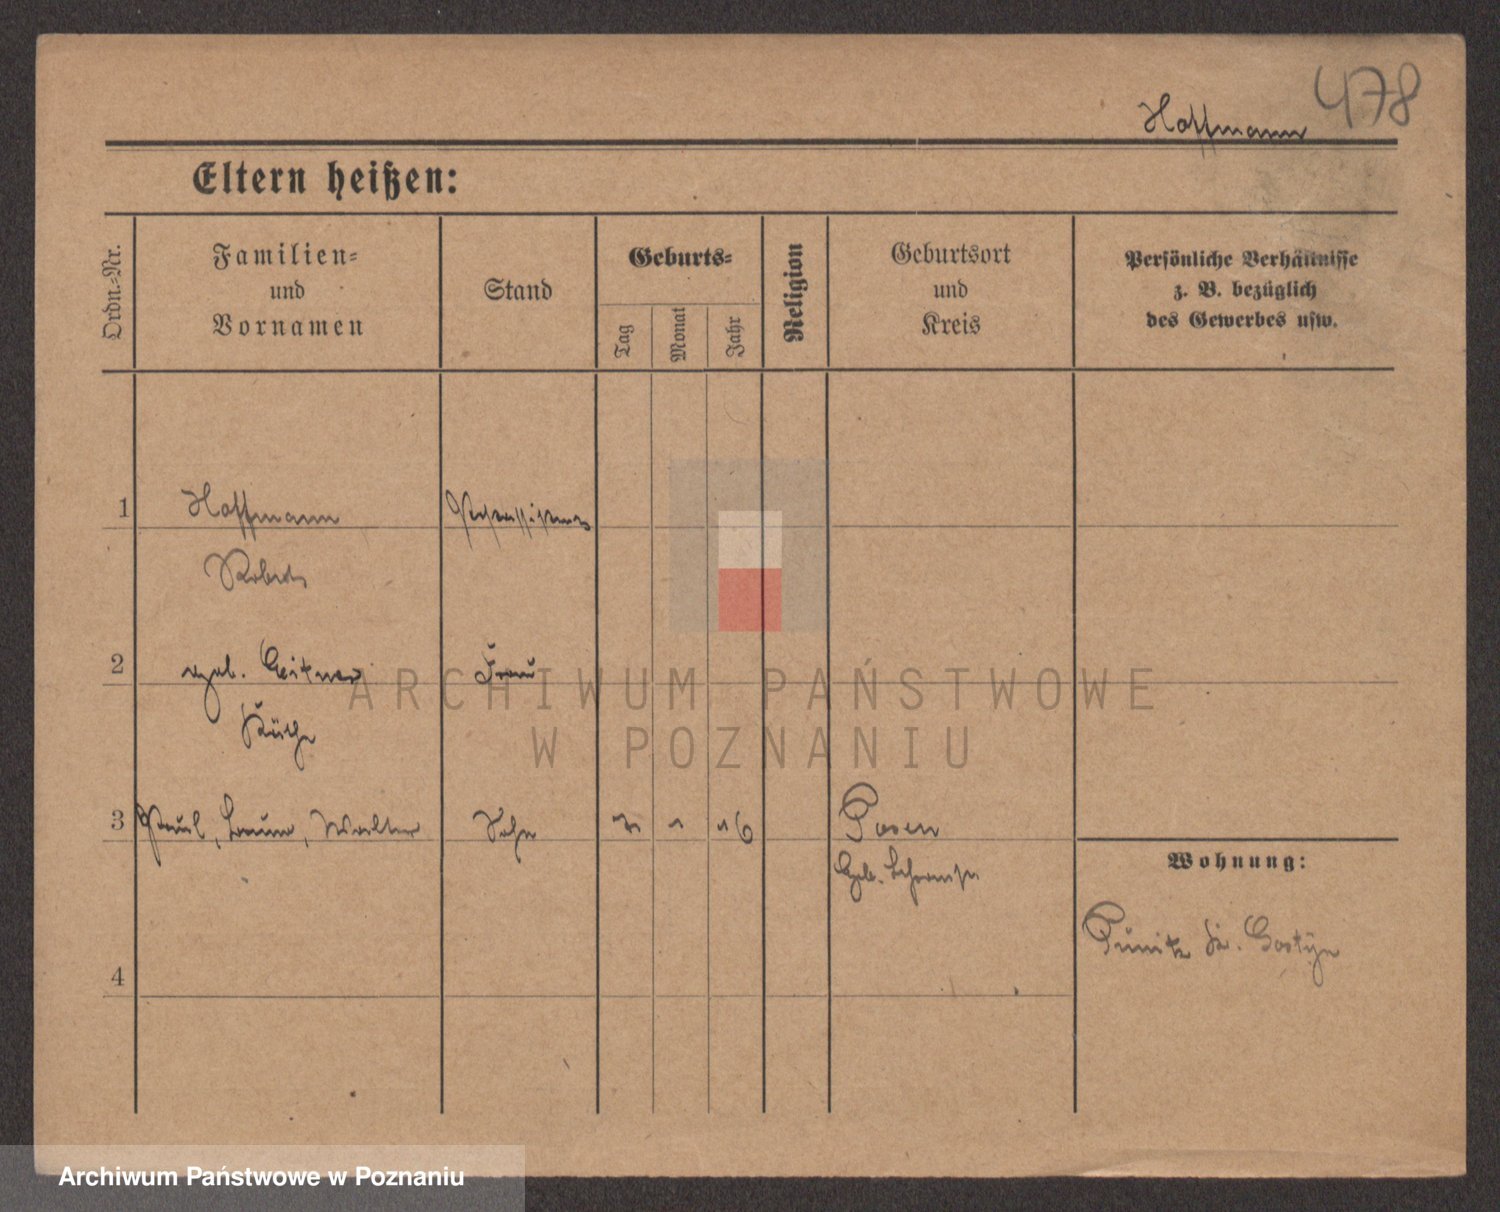 Hoffmann 478
Eltern heißen:
Ordn.-Nr.
Familien-
und
Vornamen
Stand
Geburts-
Tag
Monat
Jahr
Religion
Geburtsort
und
Kreis
Persönliche Verhältnisse
z. B. bezüglich
des Gewerbes usw.
1 Hoffmann
Robert
2 geb. Leitner Frau
Käthe
3 Paul, Walter Sohn 7. 1 16 Posen
Geb.
Wohnung:
Punitz Kr. Gostyn
4
ARCHIWUM PAŃSTWOWE
W POZNANIU
Archiwum Państwowe w Poznaniu